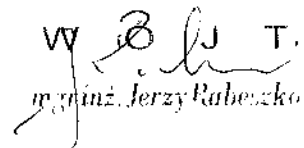 W Ó J T
mgr inż. Jerzy Rabeszko